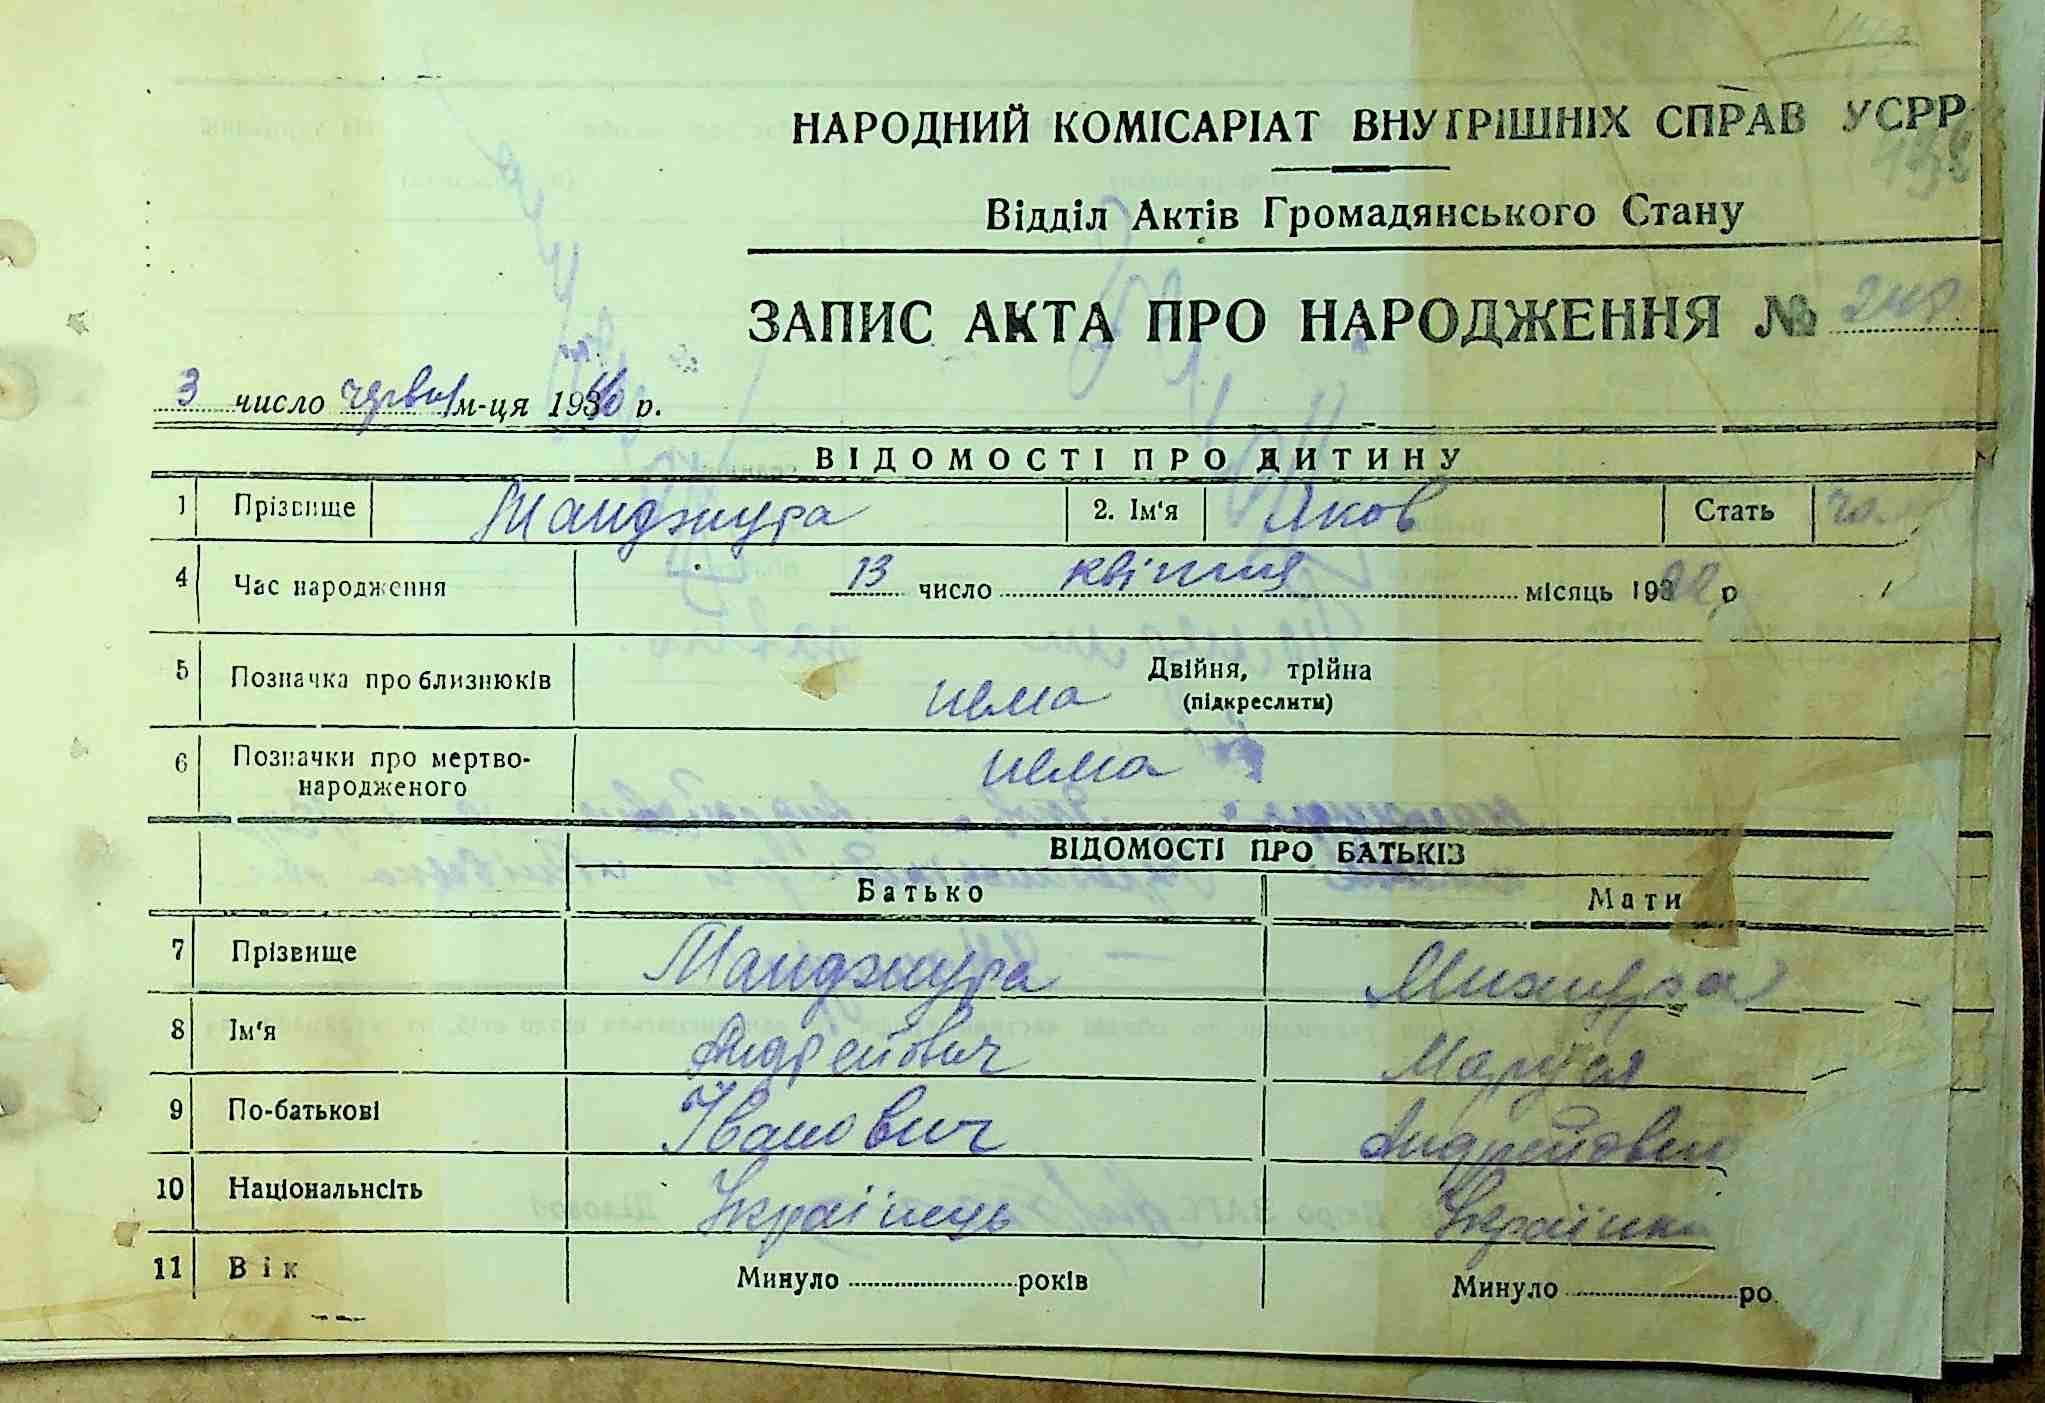 НАРОДНИЙ КОМІСАРІАТ ВНУТРІШНІХ СПРАВ УСРР
138
Відділ Актів Громадянського Стану
ЗАПИС АКТА ПРО НАРОДЖЕННЯ №
3 число червня м-ця 1940 р.
ВІДОМОСТІ ПРО ДИТИНУ
1 Прізвище Манджура 2. Ім'я Яков Стать чол
4 Час народження 13 число квітня місяць 1922 р
5 Позначка про близнюків нема Двійня, трійна
(підкреслити)
6 Позначки про мертво-
народженого нема
ВІДОМОСТІ ПРО БАТЬКІВ
Батько Мати
7 Прізвище Манджура Манжура
8 Ім'я Андрейович Маруся
9 По-батькові Іванович Андрейовна
10 Національність Українець Українка
11 Вік Минуло років Минуло ро